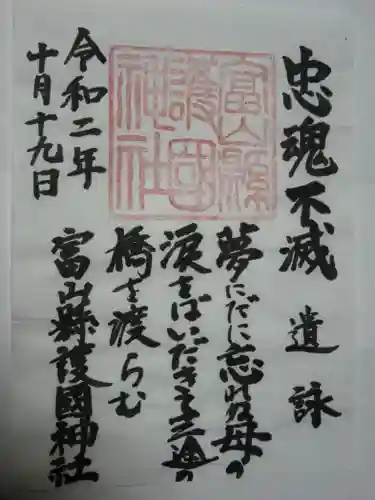 忠魂不滅
遺詠
夢にだに忘れぬ母の
涙をばいだきて三途の
橋を渡らむ
富山縣護國神社
富山縣
護國
神社
令和二年
十月十九日